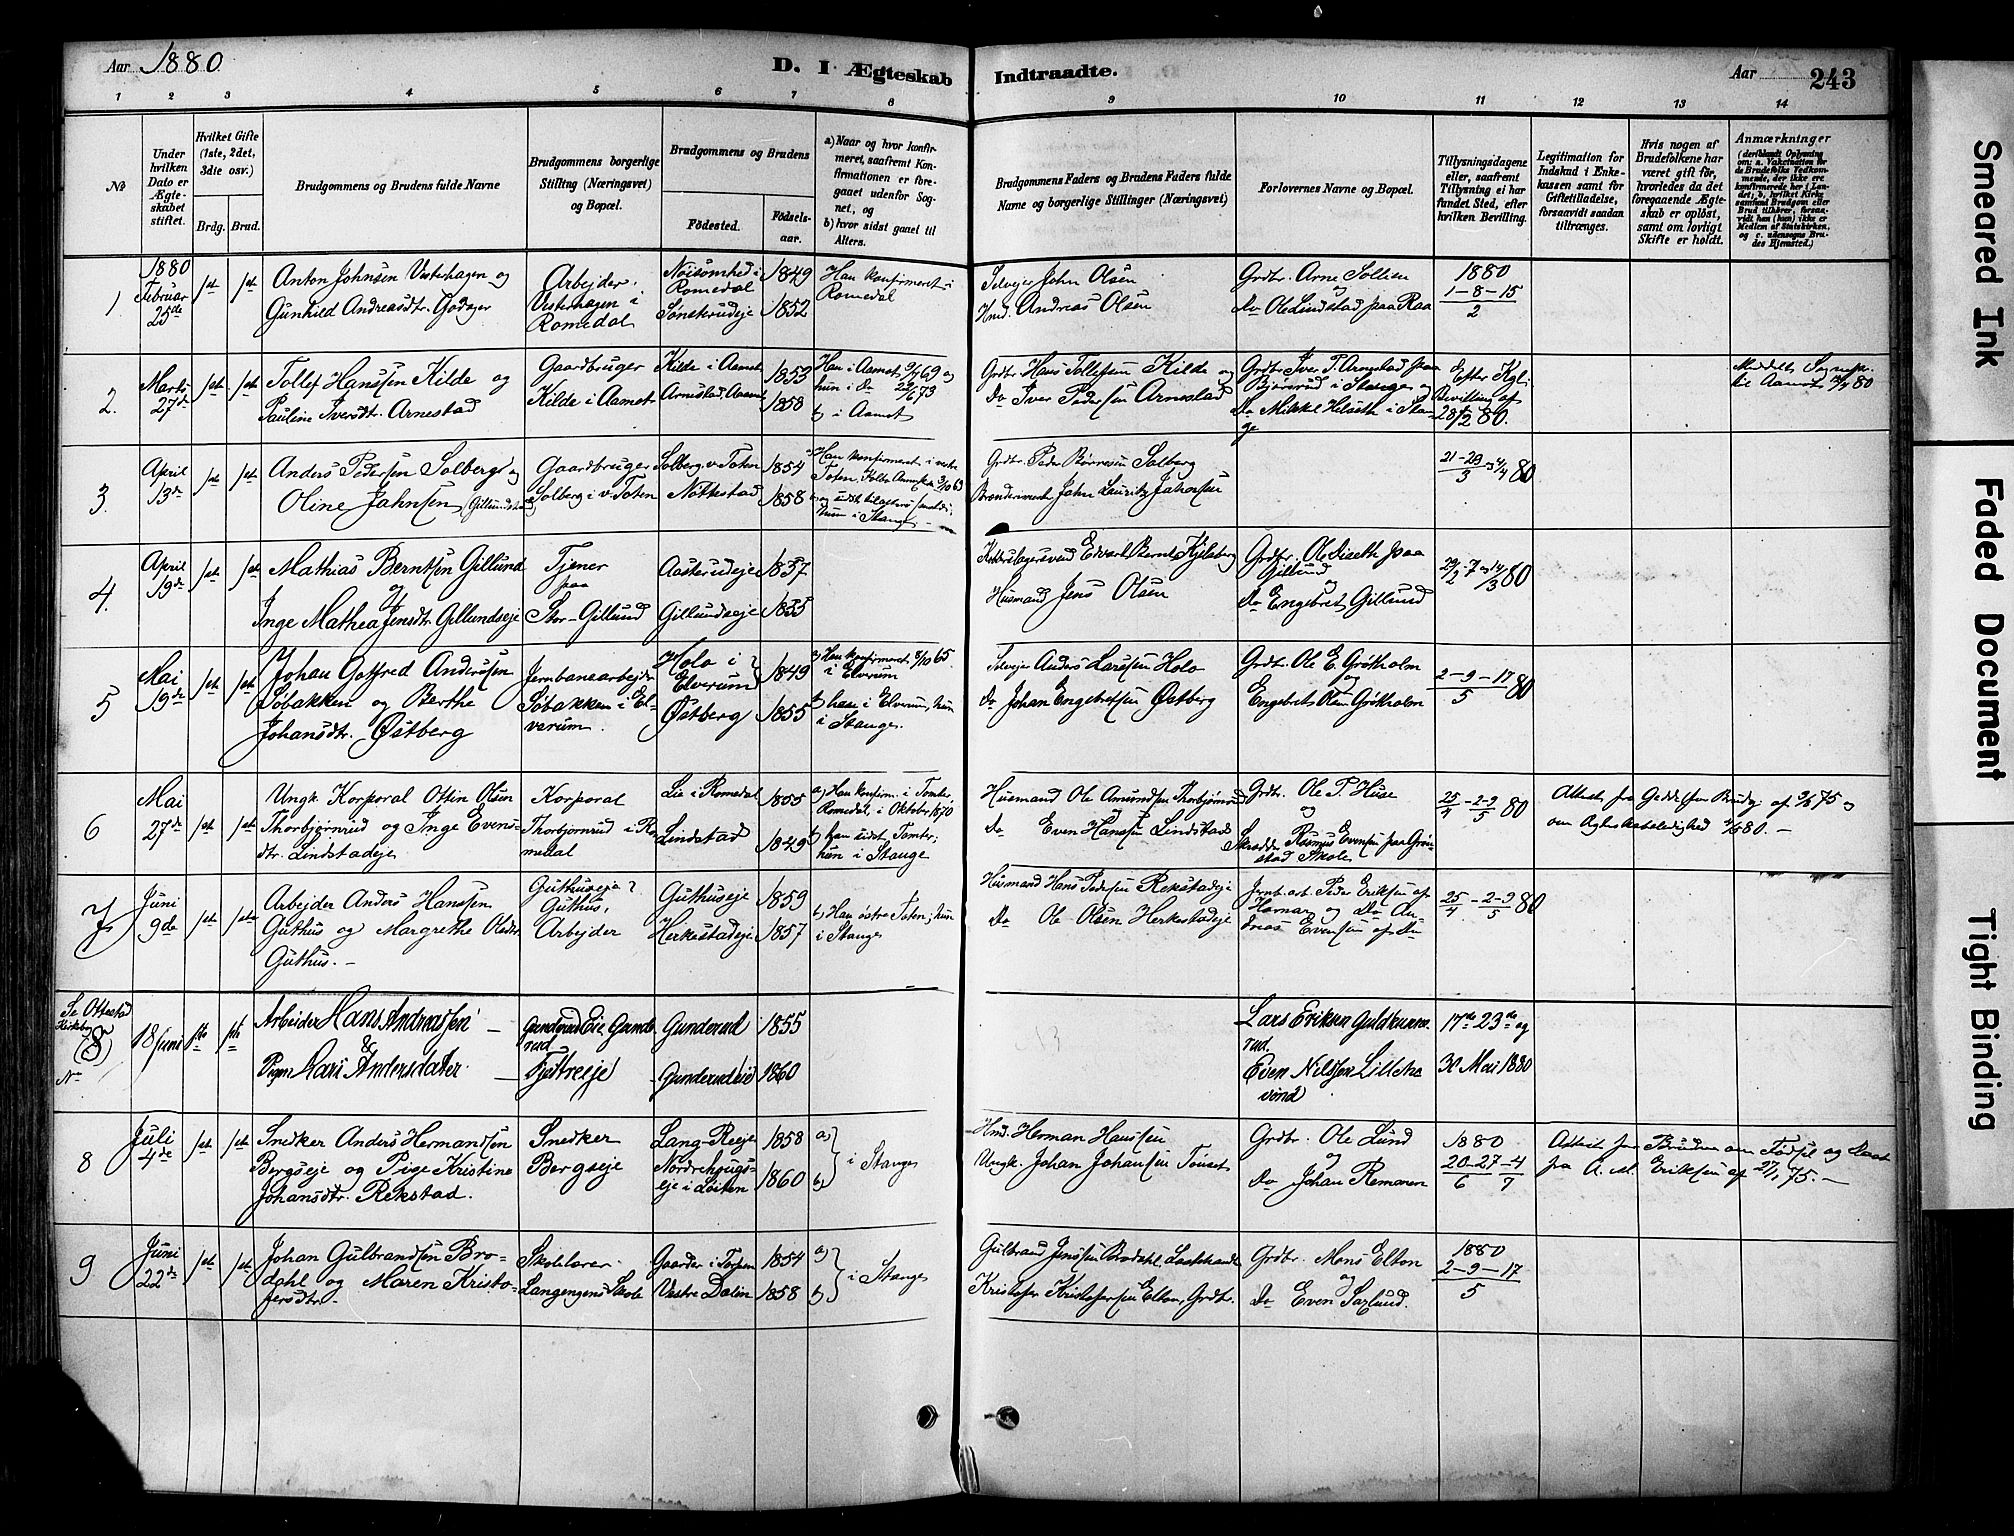 Aar 1880
D. I Ægteskab Indtraadte.
Aar 243
1 2 3 4 5 6 7 8 9 10 11 12 13 14
No
Under hvilken Dato er Ægteskabet stiftet.
Hvilket Gifte (1ste, 2det, 3die osv.)
Brdg. Brud.
Brudgommens og Brudens fulde Navne
Brudgommens borgerlige Stilling (Næringsvei) og Bopæl.
Brudgommens og Brudens
Fødested.
Fødselsaar.
a) Naar og hvor konfirmeret, saafremt Konfirmationen er foregaaet udenfor Sognet, og
b) hvor sidst gaaet til Alters.
Brudgommens Faders og Brudens Faders fulde Navne og borgerlige Stillinger (Næringsvei)
Forlovernes Navne og Bopæl.
Tillysningsdagene eller, saafremt Tillysning ei har fundet Sted, efter hvilken Bevilling.
Legitimation for Indskud i Enkekassen samt for Giftetilladelse, forsaavidt saadan tiltrænges.
Hvis nogen af Brudefolkene har været gift før, hvorledes da det foregaaende Ægteskab er opløst, samt om lovligt Skifte er holdt.
Anmærkninger (deriblandt Oplysning om: a. Vakcination for de Brudefolks Vedkommende, der ikke ere konfirmerede her i Landet; b. hvilket Kirkesamfund Brudgom eller Brud tilhører, forsaavidt han (hun) ikke er Medlem af Statskirken, og c. udensogns Brudes Hjemsted.)
1 1880 Februar 25de 1st 1st
Anton Johnsen Vesterhagen og
Gunhild Andreasdtr. Godager
Arbejder.
Vesterhagen i
Romedal
Nøisomhed i Romedal 1849
Sønsterudeje 1852
Han konfirmeret i Romedal
Selvejer John Olsen
Hmd. Andreas Olsen
Grdtr. Arne Sollien
og
Do Ole Lindstad paa Raa
1880
1-8-15
2
2. Marts 27de 1st 1st
Tollef Hanssen Kilde og
Pauline Iversdtr. Arnestad
Gaardbruger
Kilde i Aamot
Kilde i Aamot 1853
Arnestad, Aamot 1858
Han i Aamot 9/69 og
hun i Do 29/6 73
b) i Aamot
Grdtr Hans Tollefsen Kilde og
Do Iver Pedersen Arnestad
Grdtr Iver P. Arnestad paa
Bjørnerud i Stange og
Do Mikkel Helseth i Stange
Efter Kgl.
Bevilling af
28/2 80.
3. April 13de 1st 1st
Anders Pedersen Solberg og
Oline Jahnsen (Gillundstrand)
Gaardbruger
Solberg i v. Toten
Solberg v. Toten 1854
Nøttestad 1858
Han konfirmeret i vestre
Toten
hun i Stange
Grdtr. Peder Børresen Solberg
Brænderimester John Lauritz Jahnsen
21-29 og 4/4 80
3
4. April 19de 1st 1st
Mathias Berntsen Gillund
og
Inge Mathea Jensdtr. Gillundseje
Tjener
paa
Stor-Gillund
Aasterudeje 1837
Gillundseje 1835
Edvart Bernt Kjelsberg
Husmand Jens Olsen
Grdtr. Ole Diseth paa
Gillund
og
Do Engebret Gillund
29/2-7 og 14/3 80
5 Mai 19de 1st 1st
Johan Gotfred Andersen
Søbakken og Berthe
Johansdtr. Østberg
Jernbanearbejder
Søbakken i Elverum.
Holo i Elverum 1849
Østberg 1855
a) Han konfirmeret 8/10 65
i Elverum
b) han i Elverum, hun
i Stange.
Selvejer Anders Larssen Holo
Do Johan Engebretsen Østberg
Grdtr. Ole E. Grøtholm
og
Engebret Olsen Grøtholm
2-9-17 80
5
6 Mai 27de 1st 1st
Ungk. Korporal Ottin Olsen
Thorbjørnrud og Inge Evensdtr. Lindstadeje
Korporal
Thorbjørnrud i Romedal
Lie i Romedal 1855
Lindstad 1849
a) Han konfirm. i Tomter
Romedal, i Oktober 1870
b) han sidst Tomter,
hun i Stange
Husmand Ole Amundsen Thorbjørnrud
Do Even Hanssen Lindstad
Grdtr. Ole P. Huse
og
Skrædder Rasmus Evensen paa Grønstad Skole
25/4-2-9/5 80
Attest fra for Brudg. af 75 og
om Ægteskabsledighed 80.-
7 Juni 9de 1st 1ste
Arbejder Anders Hansen
Guthus og Margrethe Olsdtr.
Guthus.-
Guthuseje?
Guthus,
Arbejder
Guthuseje 1859
Herkestadeje 1857
b) Han østre Toten; hun
i Stange
Husmand Hans Pedersen Rekstadeje
Do Ole Olsen Herkestadeje
Jernb. arb. Peder Eriksen af
Hamar og Do Andreas Evensen af Do
25/4-2-9/5 80
Se Ottestad (8) 18 Juni 1ste 1ste
Arbeider Hans Andreassen -
&
Pigen Kari Andersdatter. -
Gunderud Eie Gunderud
Tjøtreeje
Gunderud 1855
Gunderudeie 1860
Lars Eriksen Guldkunrud.
Even Nilssen Lillehavind
17de 23de og
30 Mai 1880
8 Juli 4de 1st 1st
Snedker Anders Hermandsen
Bergseje og Pige Kristine
Johansdtr. Rekstad.
Snedker
Bergseje
Lang-Reeje 1858
Nordrehougseje i Løiten 1860
a)
b) i Stange
Hmd. Herman Hanssen
Ungk. Johan Johansen Tonset
Grdtr. Ole Lund
og
Do Johan Remmen
1880
20-27-4
6 7
Attest for Bruden om Fødsel og Daab
fra A. M. Eriksen af 27/1 75.-
9 Juni 22de 1st 1st
Johan Gulbrandsen Brodahl og Maren Kristofersdtr.
Skolelærer.
Langengens Skole
Gaarder i Torpen 1854
Vestre Dalin 1858
a)
b) i Stange
Gulbrand Jenssen Brodahl, Landhandl.
Kristofer Kristofersen Elton, Grdtr.
Grdtr. Mons Elton
og
Do Even Saxlund.
1880
2-9-17
5
Smeared Ink
Faded Document
Tight Binding